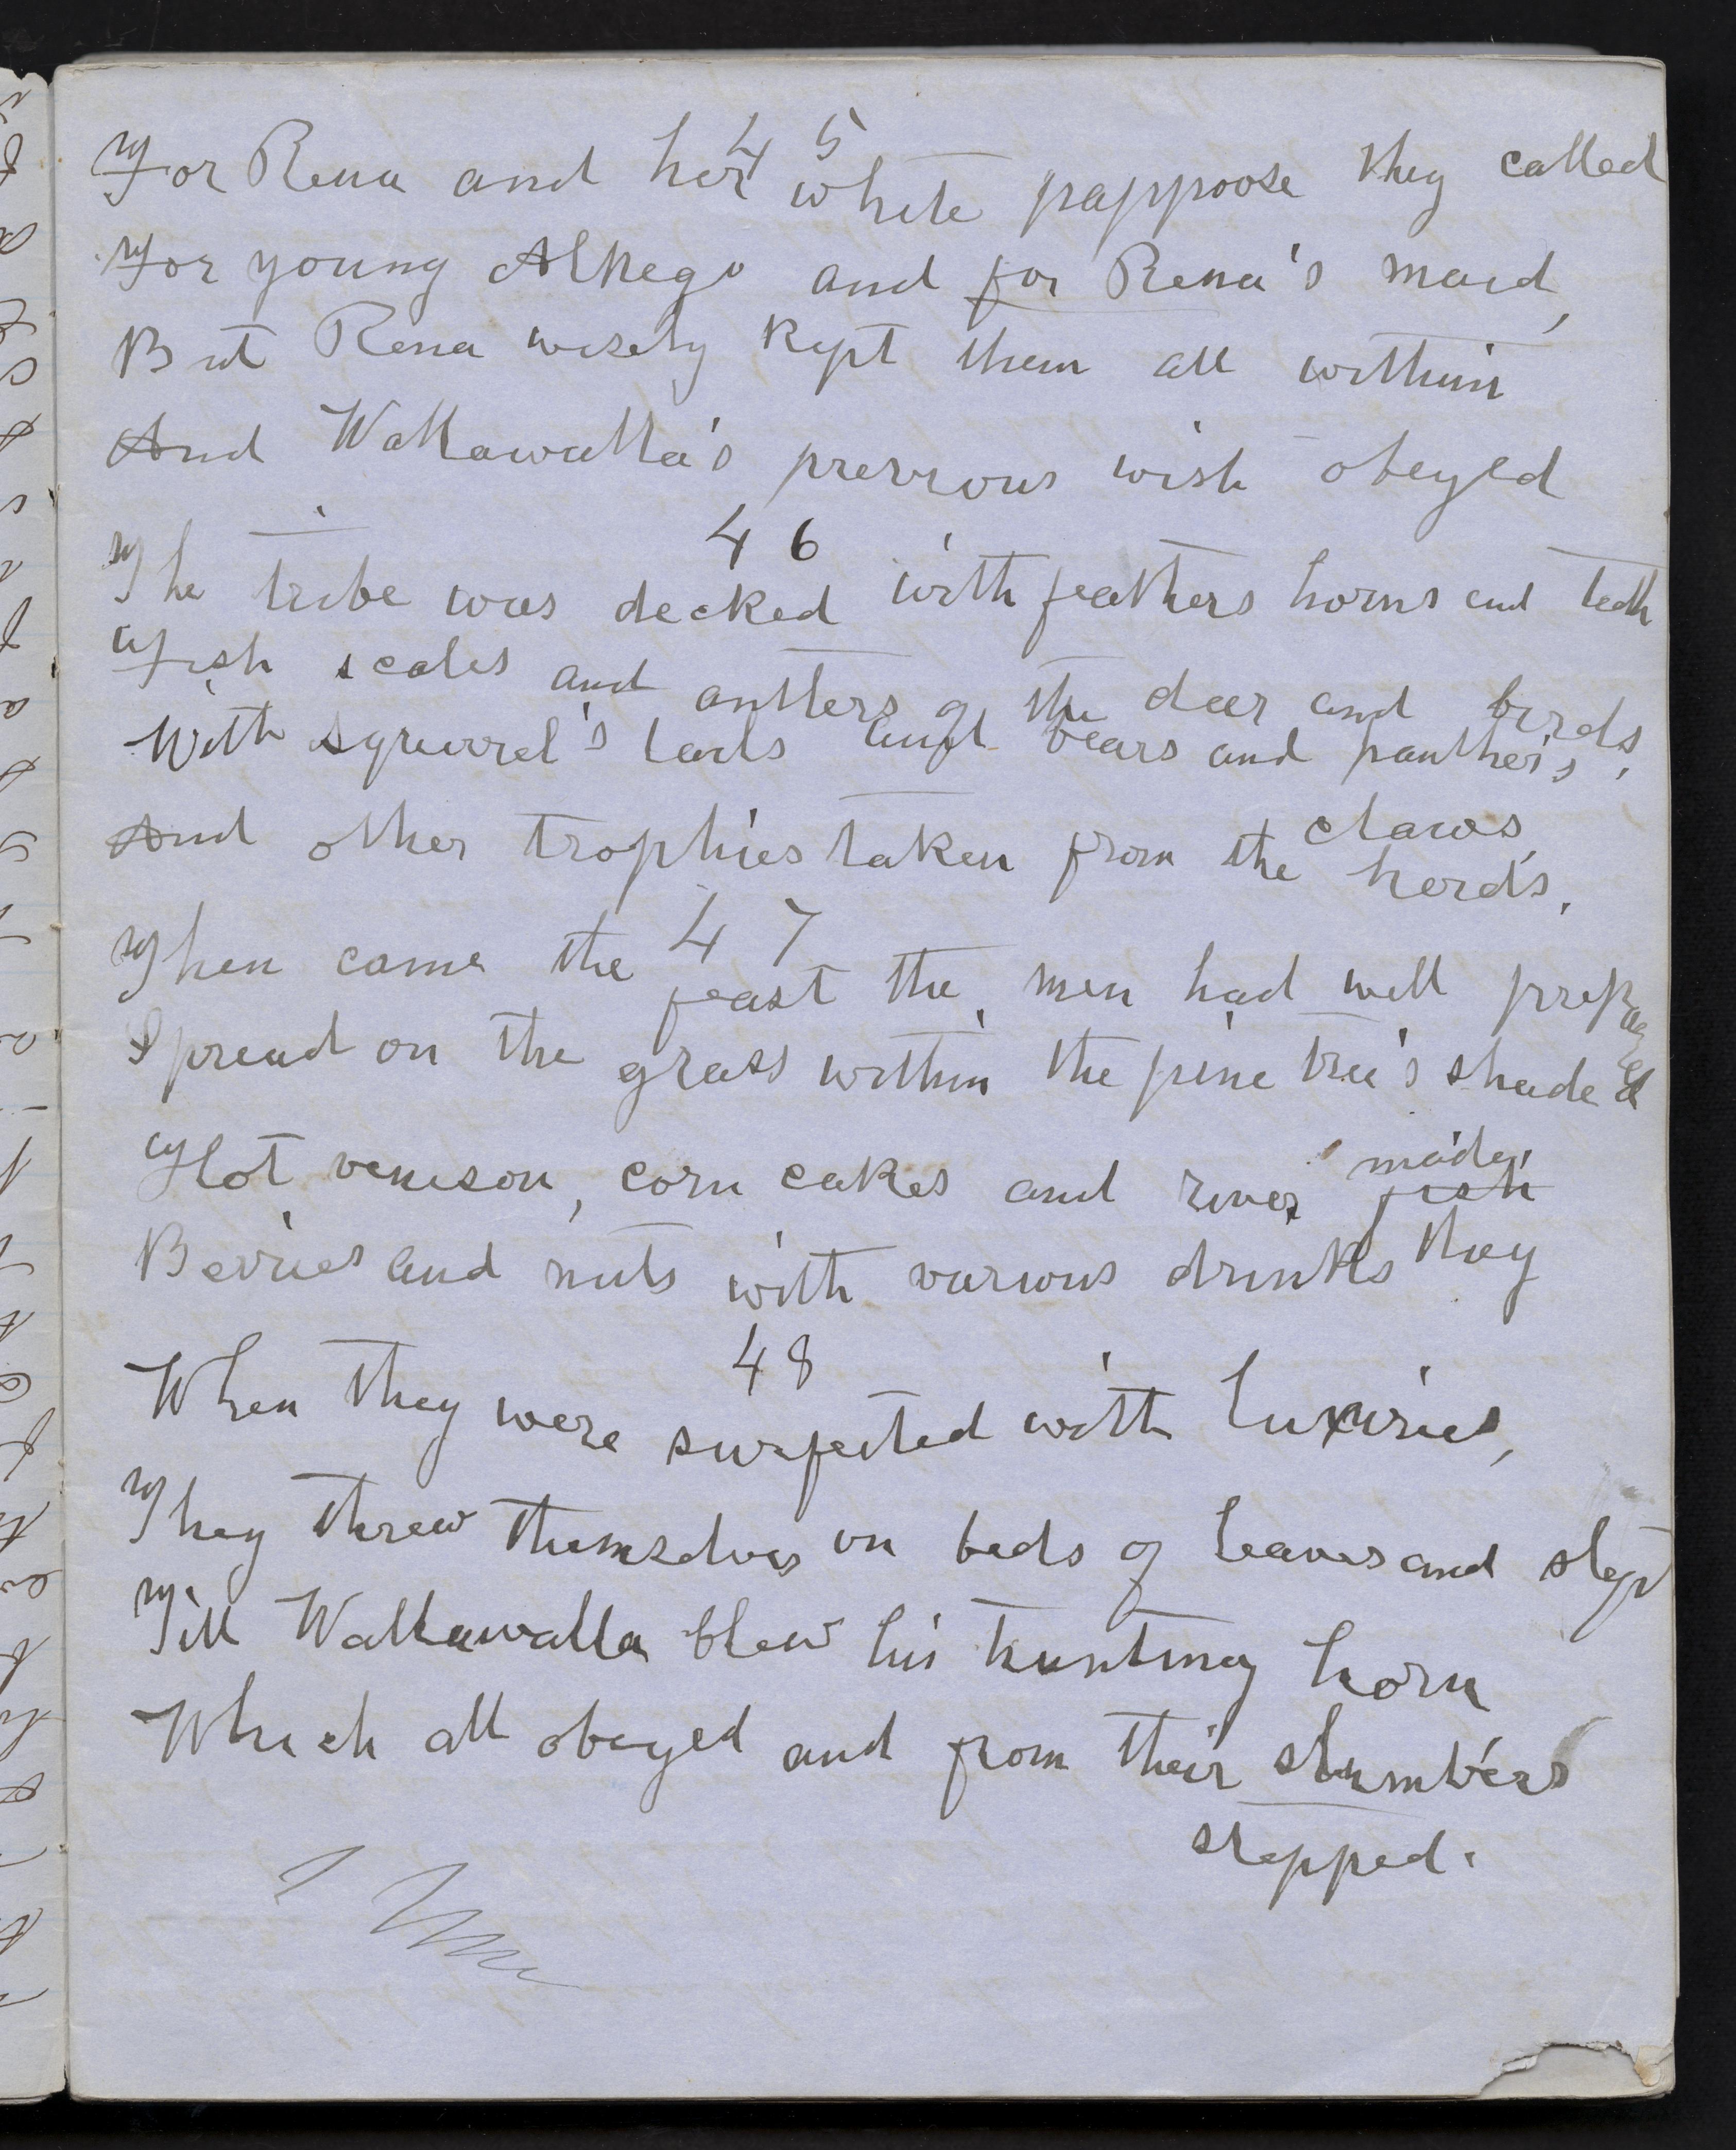 45
For Rena and her white pappoose they called
For young Alkego and for Rena's maid,
But Rena wisely kept them all within
And Wallawalla's previous wish obeyed
46
The tribe was decked with feathers horns and teeth
Fish scales and antlers of the deer and birds,
With squirrel's tails and bears and panther's claws,
And other trophies taken from the herds.
47
Then came the feast the men had well prepared
Spread on the grass within the pine tree's shade
Hot venison, corn cakes and river fish
Berries and nuts with various drinks they made.
48
When they were surfeited with luxuries,
They threw themselves on beds of leaves and slept
Till Wallawalla blew his hunting horn
Which all obeyed and from their slumbers
stepped.